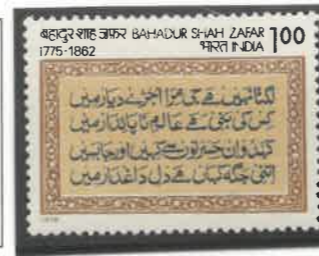 बहादुर शाह ज़फ़र BAHADUR SHAH ZAFAR 100
1775-1862 भारत INDIA
لگتا نہیں ہے جی مرا اجڑے دیار میں
کس کی بنی ہے عالمِ ناپائدار میں
کہدو ان حسرتوں سے کہیں اور جا بسیں
اتنی جگہ کہاں ہے دلِ داغدار میں